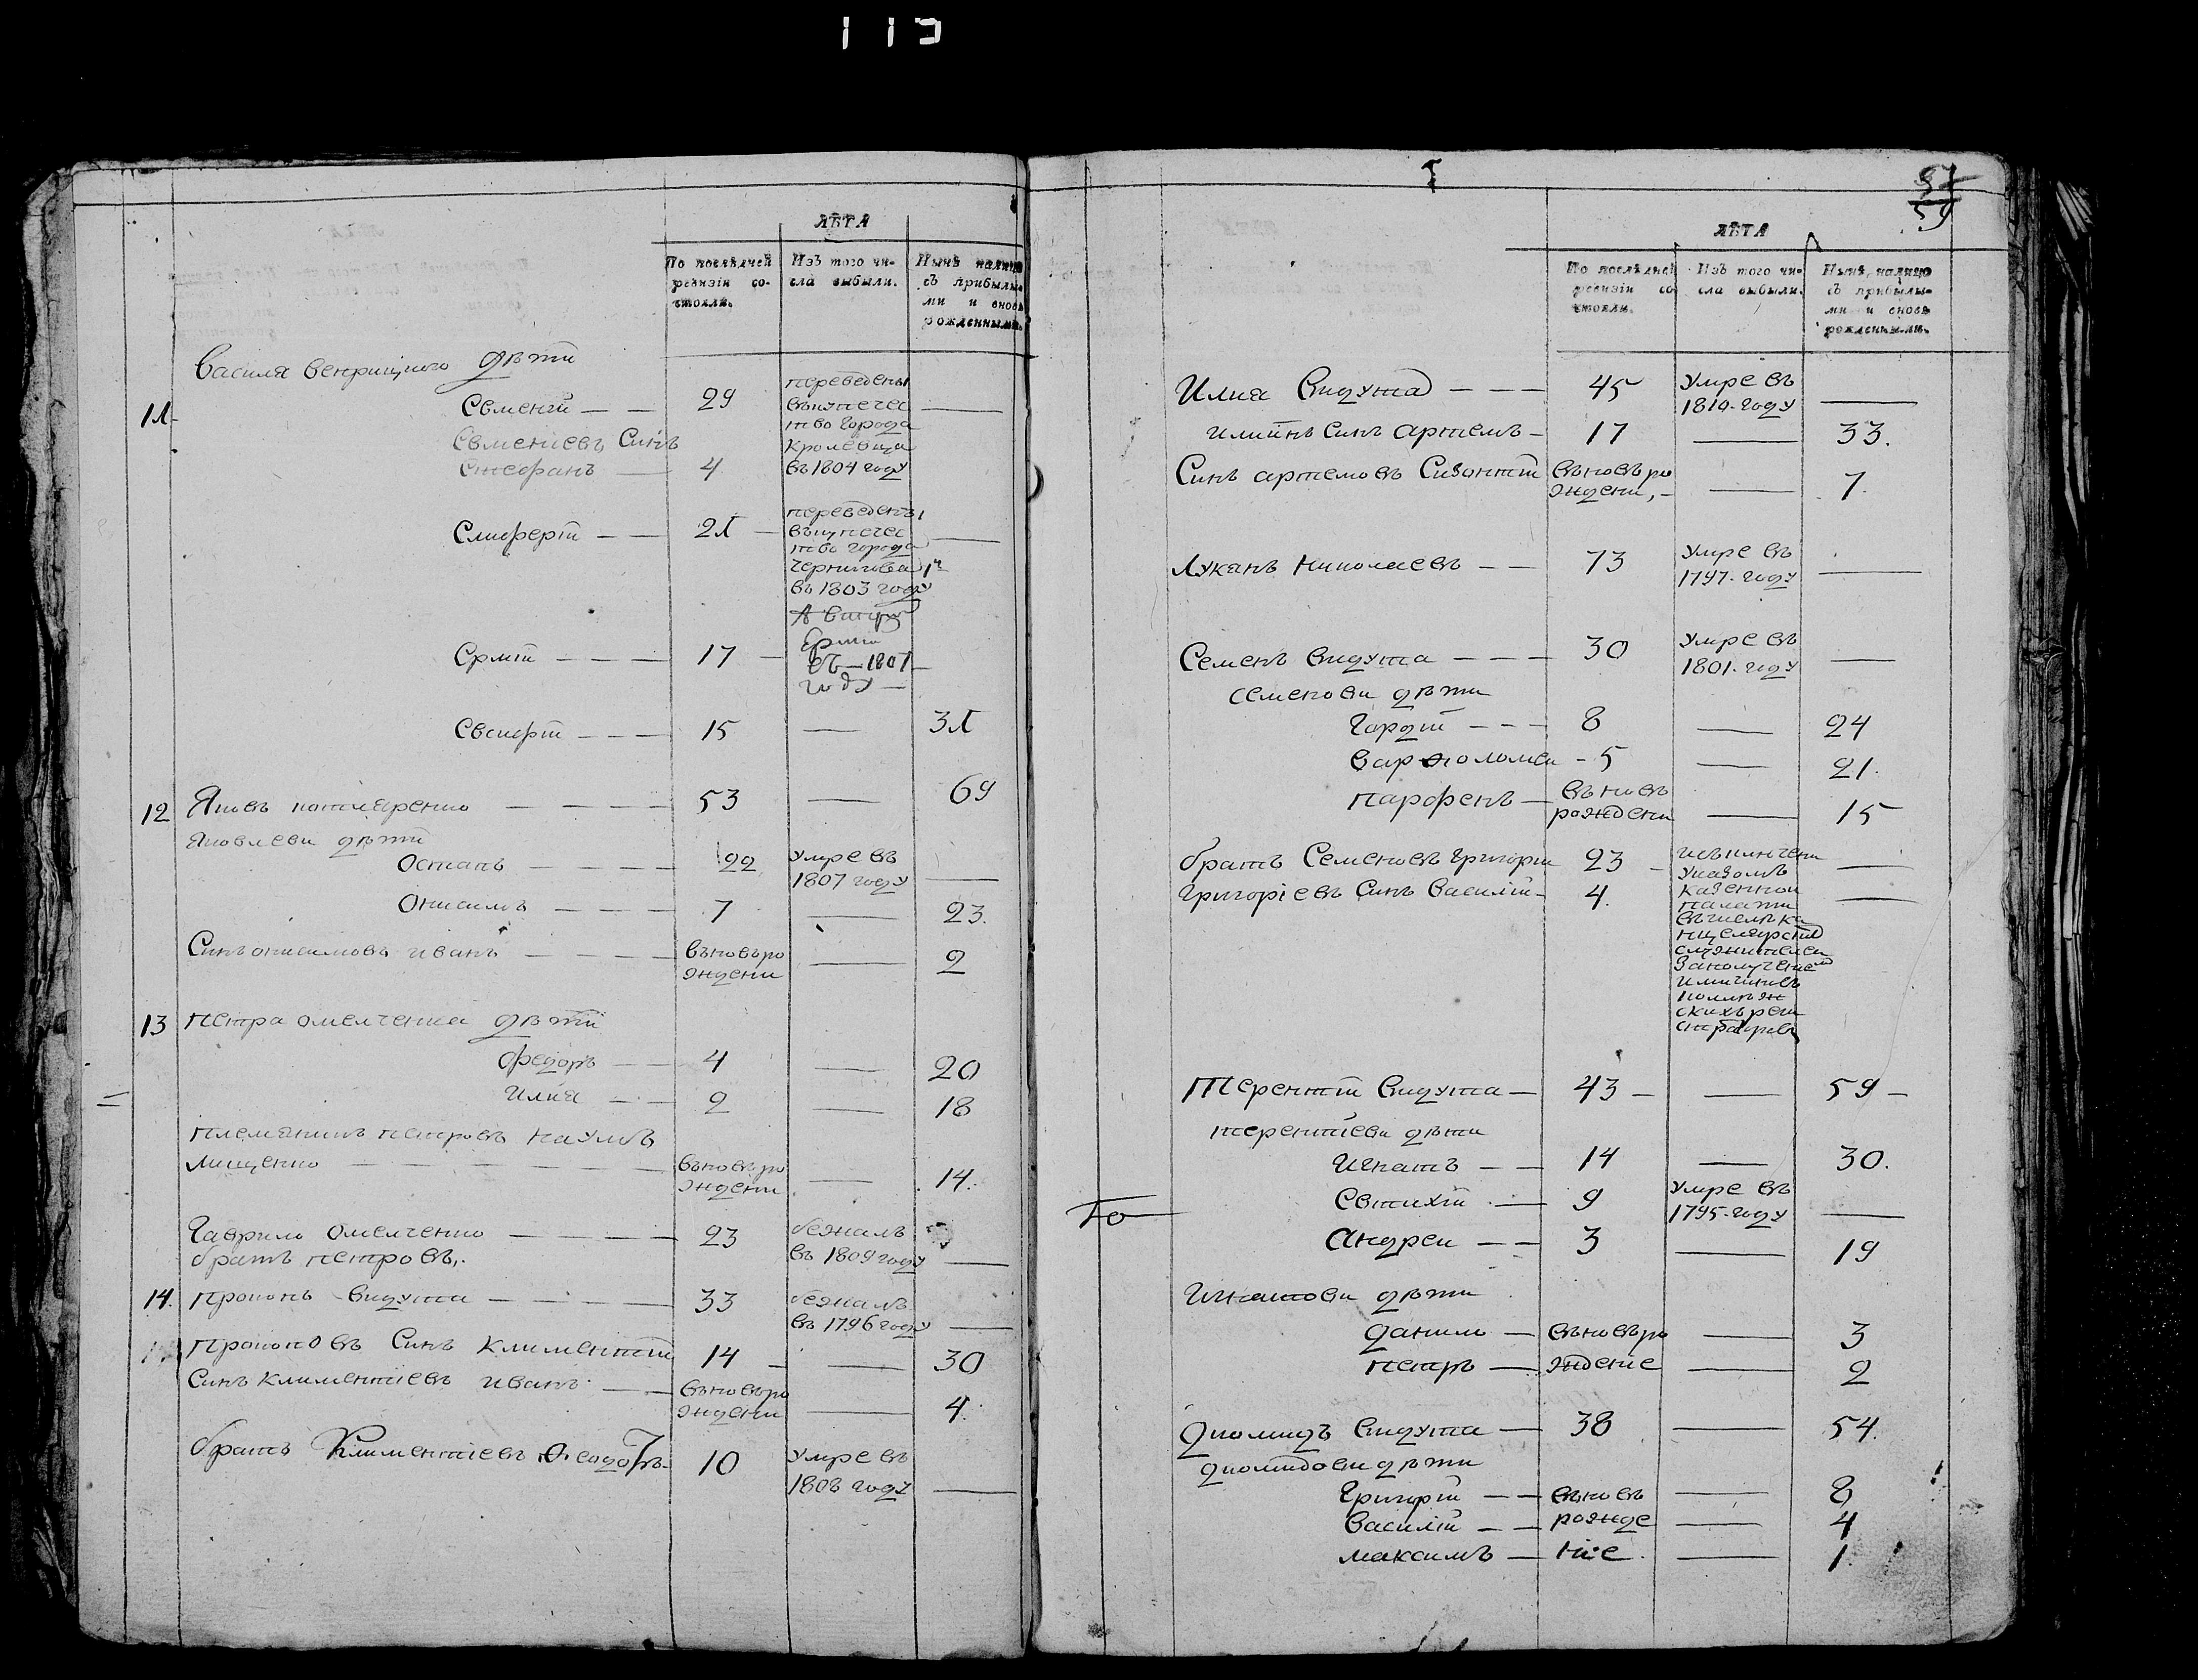 115
ЛѢТА
По послѣдней ревизіи состояли.
Изъ того числа выбыли.
Нынѣ налицо съ прибылыми и вновь рожденными.
Василя дѣти
11 Евменій — — 29 переведены
въкупечес
тво города
Евменіевъ Синъ Кролевца
Стефанъ — 4 въ 1804 году
переведены
Елиферій — — 21 — въкупечес
тво города
Чернигова
въ 1803 году
Ермій
Ермій — — — 17 — въ — 1807 —
году —
Евсиѳій — — — 15 — 31
12 Яковъ — — — — 53 — 69
Яковлеви дѣти
Остапъ — — — — 22 умре въ
1807 году —
Онисимъ — — — — 7 — 23.
Синъ онисимовъ иванъ — — — — вьновьро
ждени — 2
13 Петра омелченка дѣти
Федоръ — — 4 — 20
Илия — — 2 — 18
племянникъ петровъ наумъ
мищенко — — — — — вьновьро
ждени — 14.
Гаврило Омелченко — — — — 23 бежалъ
братъ петровъ. въ 1809 году —
14. Прокопъ Видута — — — — 33 бежалъ
въ 1796 году —
Прокоповъ Синъ климентій 14 — — 30
Синъ климентіевъ иванъ — — вьновьро
ждени — 4.
братъ Климентіевъ Ѳеодоръ 10 умре въ
1808 году —
57
59
ЛѢТА
По послѣдней ревизіи состояли.
Изъ того числа выбыли.
Нынѣ налицо съ прибылыми и вновь рожденными.
Илия Видута — — — 45 умре въ
1810. году —
илиинъ синъ артемъ — 17 — 33.
Синъ артемовъ Сизонтій вьновьро
ждени, — — 7.
Лукянъ Николаевъ — — 73 умре въ
1797. году —
Семенъ Видута — — — 30 умре въ
1801. году —
семенови дѣти
Гордій — — — 8 — 24
Варѳоломеи — 5 — 21.
Парфенъ — вьновь
рождени — 15
братъ Семеновъ Григорій 23 — исьключени —
Григоріевъ Синъ Василій — 4. указомъ —
казенной
палати
Терентій Видута — 43 — — 59 —
терентіеви дѣти
Игнатъ — — 14 — 30.
Евтихій — 9 умре въ
1795. году —
Андреи — — 3 — 19
Игнатови дѣти
Данило — вьновьро — 3
петръ — ждение — 2
Диомидъ Видута — 38 — 54.
диомидови дѣти
Григорій — — вьновь — 8
Василій — — рожде — 4
максимъ — ние. — 1